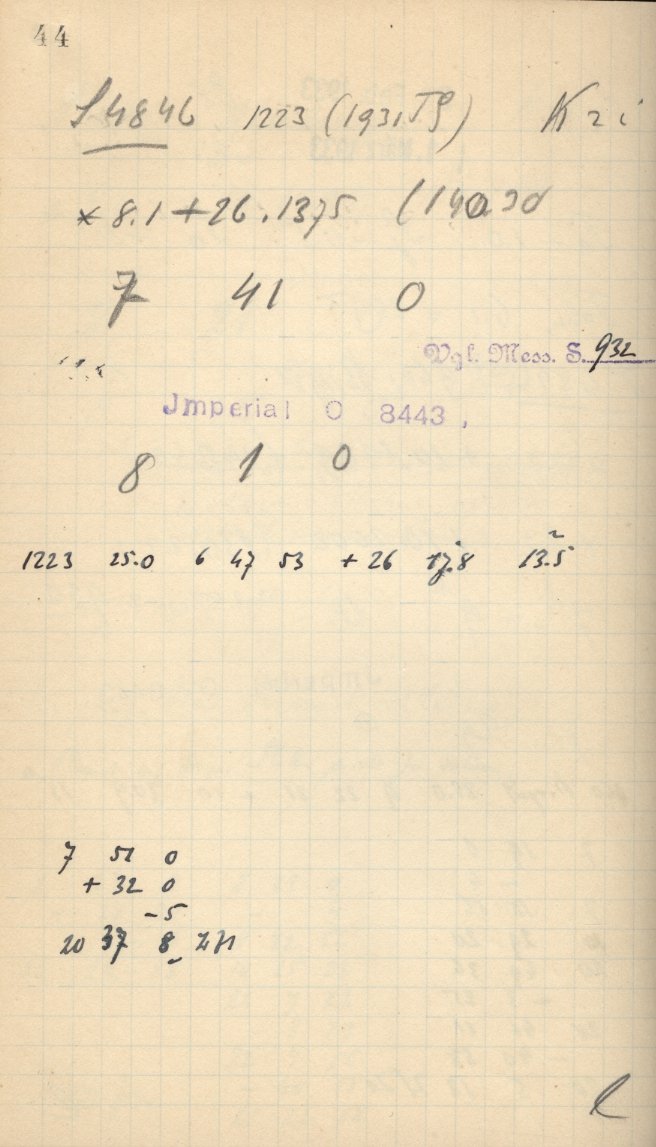 44
S4846 1223 (1931 TG) Kzi
* 8.1 + 26.1375 (140
7 41 0
Vgl. Mess. S. 932
Jmperial O 8443,
8 1 0
1223 25.0 6 47 53 + 26 17.8 13.5
7 51 0
+ 32 0
- 5
20 37 8